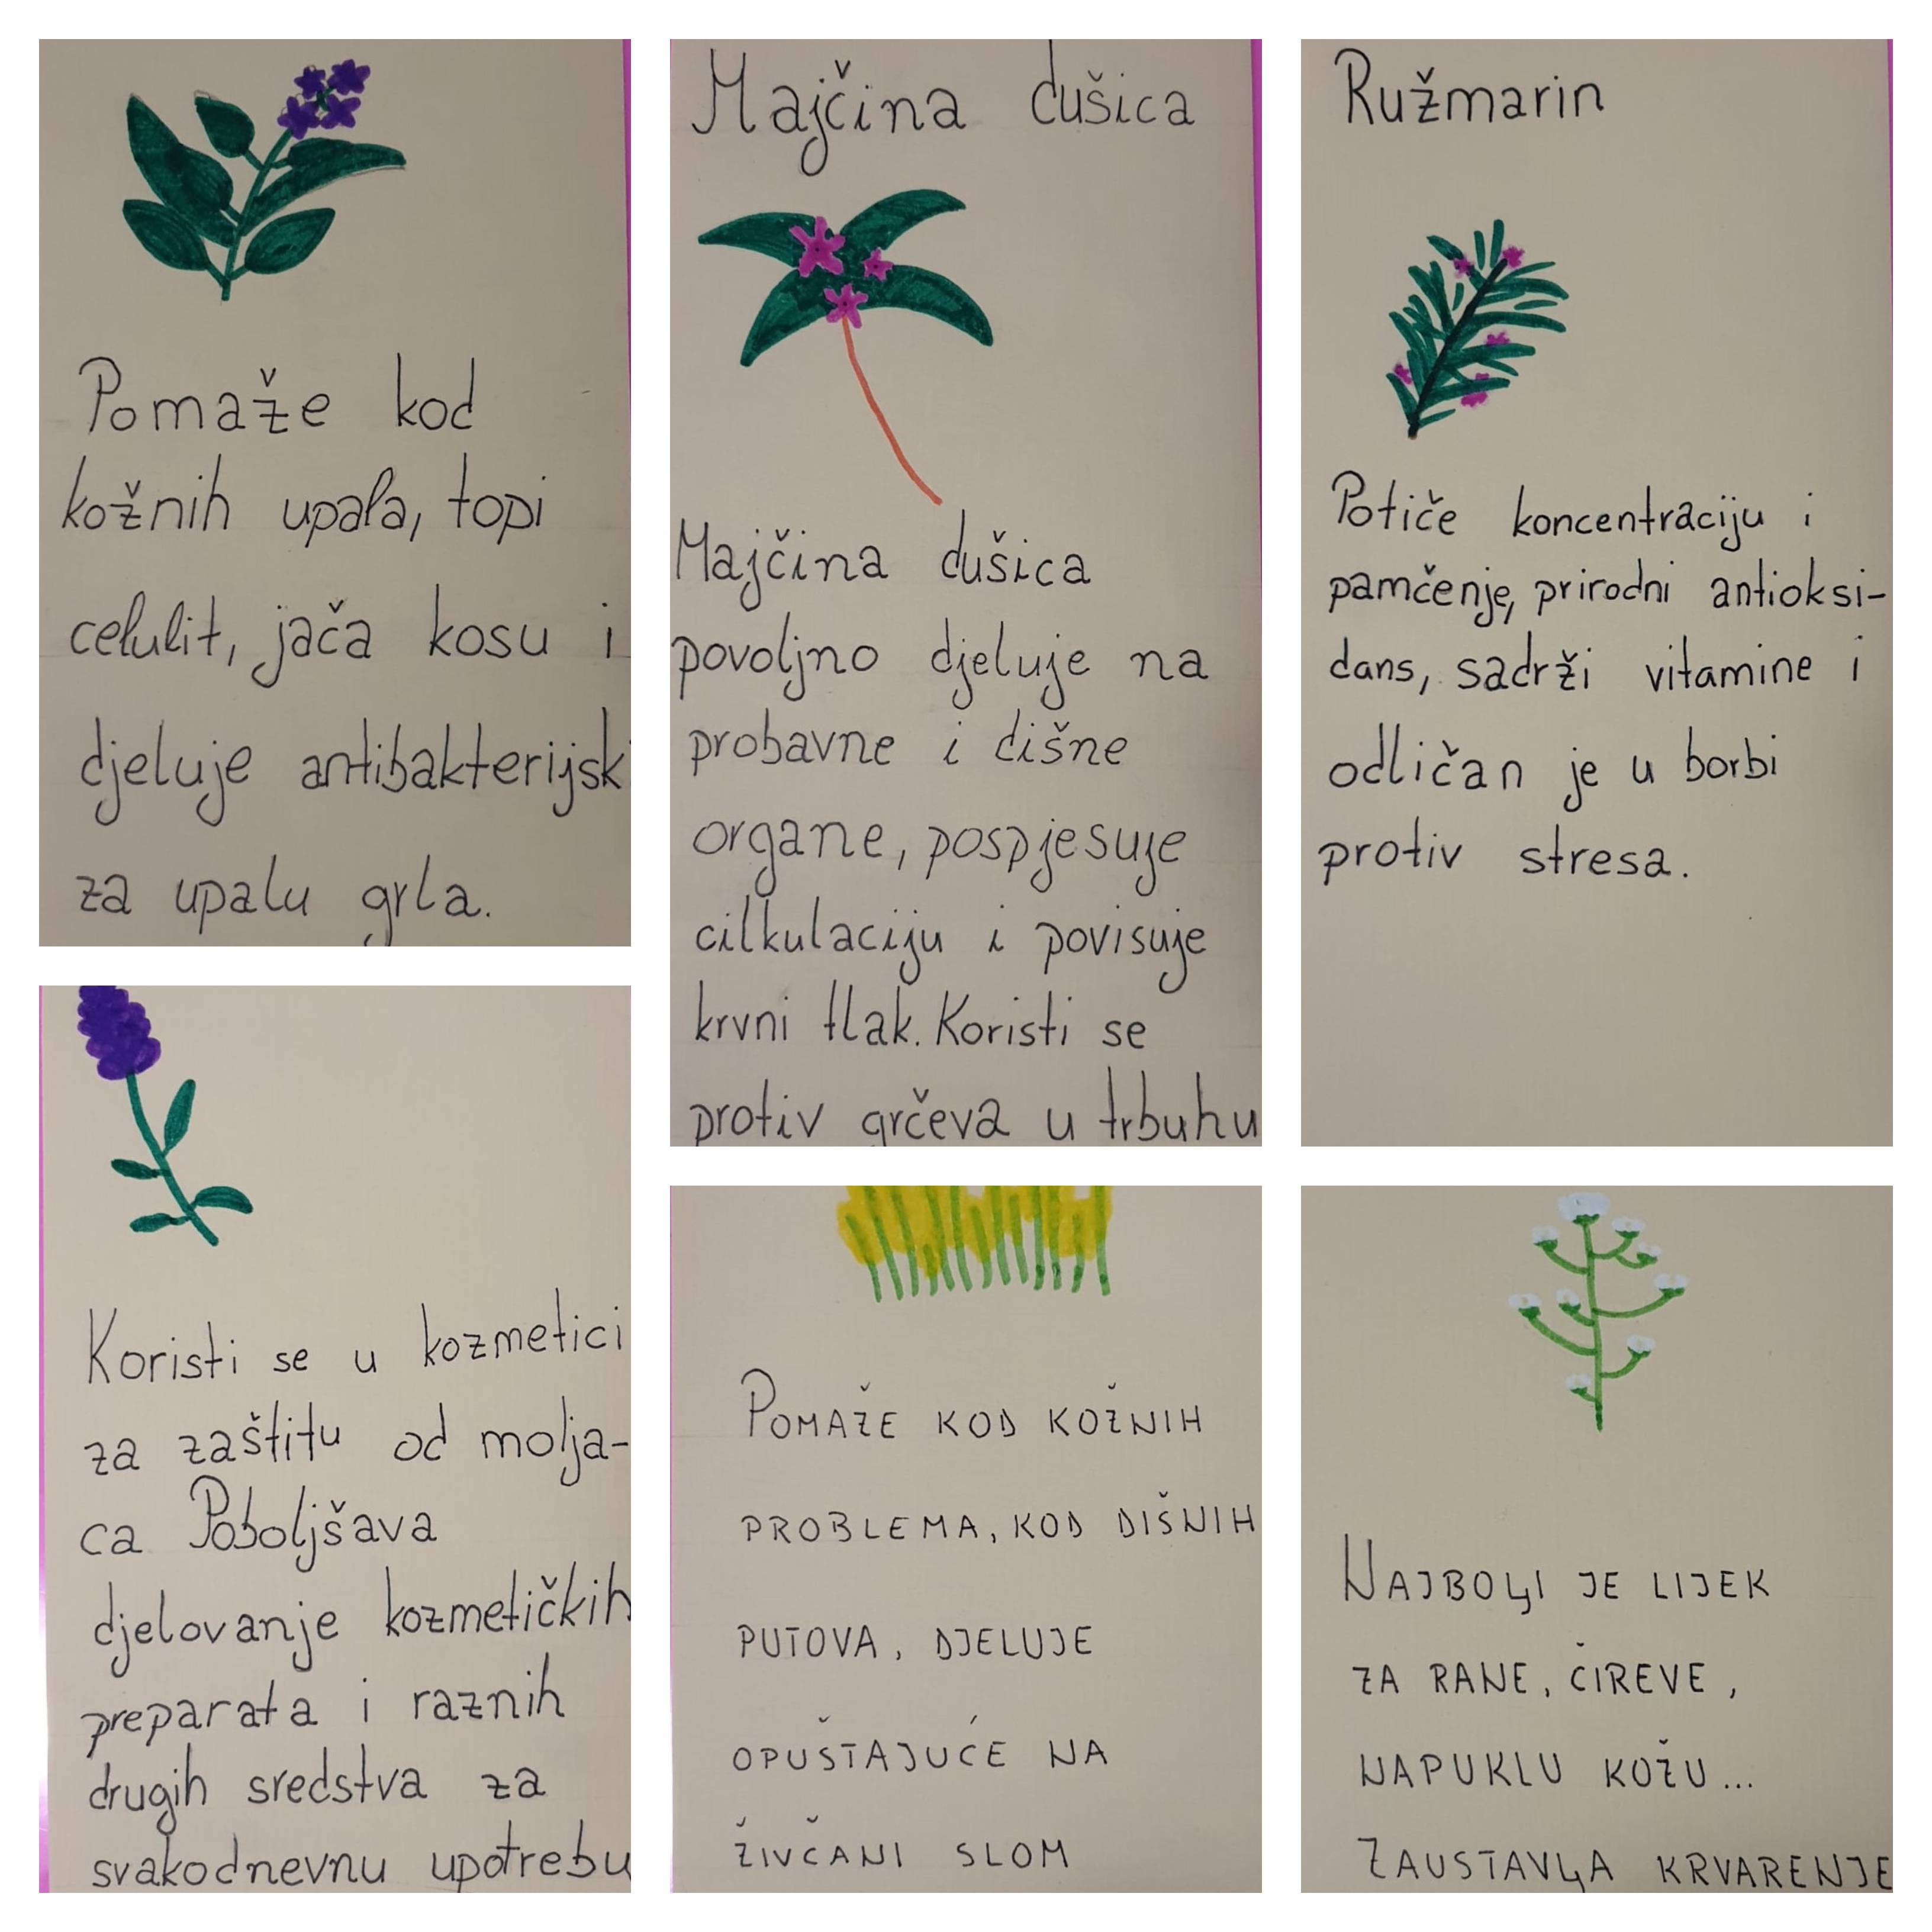 Pomaže kod
kožnih upala, topi
celulit, jača kosu i
djeluje antibakterijsk
za upalu grla.
Majčina dušica
Majčina dušica
povoljno djeluje na
probavne i dišne
organe, pospjesuje
cilkulaciju i povisuje
krvni tlak. Koristi se
protiv grčeva u trbuhu
Ružmarin
Potiče koncentraciju i
pamčenje, prirodni antioksi-
dans, sadrži vitamine i
odličan je u borbi
protiv stresa.
Koristi se u kozmetici
za zaštitu od molja-
ca Poboljšava
djelovanje kozmetičkih
preparata i raznih
drugih sredstva za
svakodnevnu upotrebu
POMAŽE KOD KOŽNIH
PROBLEMA, KOD DIŠNIH
PUTOVA, DJELUJE
OPUŠTAJUĆE NA
ŽIVČANI SLOM
NAJBOLJI JE LIJEK
ZA RANE, ČIREVE,
NAPUKLU KOŽU...
ZAUSTAVLJA KRVARENJE